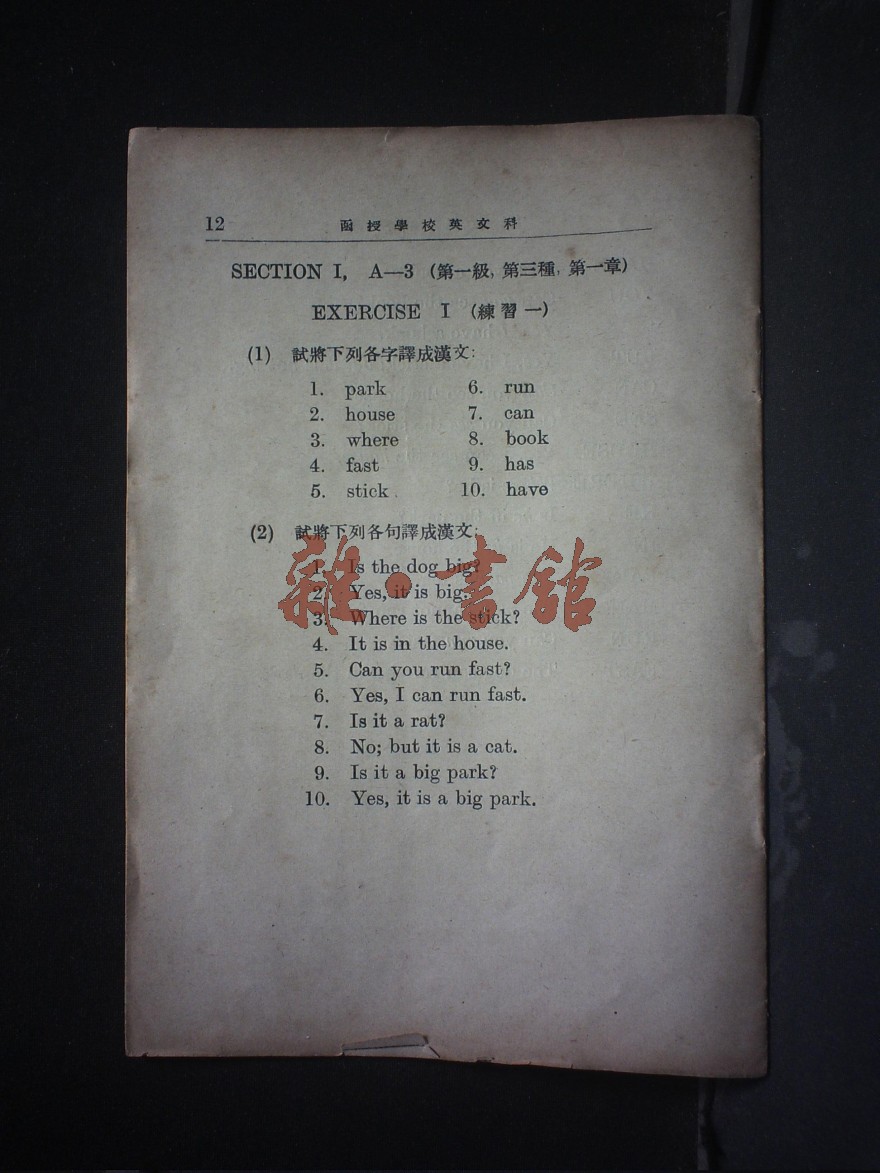 12 函授學校英文科
SECTION I, A—3 (第一級, 第三種, 第一章)
EXERCISE I (練習一)
(1) 試將下列各字譯成漢文:
1. park 6. run
2. house 7. can
3. where 8. book
4. fast 9. has
5. stick 10. have
(2) 試將下列各句譯成漢文:
1. Is the dog big?
2. Yes, it is big.
3. Where is the stick?
4. It is in the house.
5. Can you run fast?
6. Yes, I can run fast.
7. Is it a rat?
8. No; but it is a cat.
9. Is it a big park?
10. Yes, it is a big park.
雜·書館